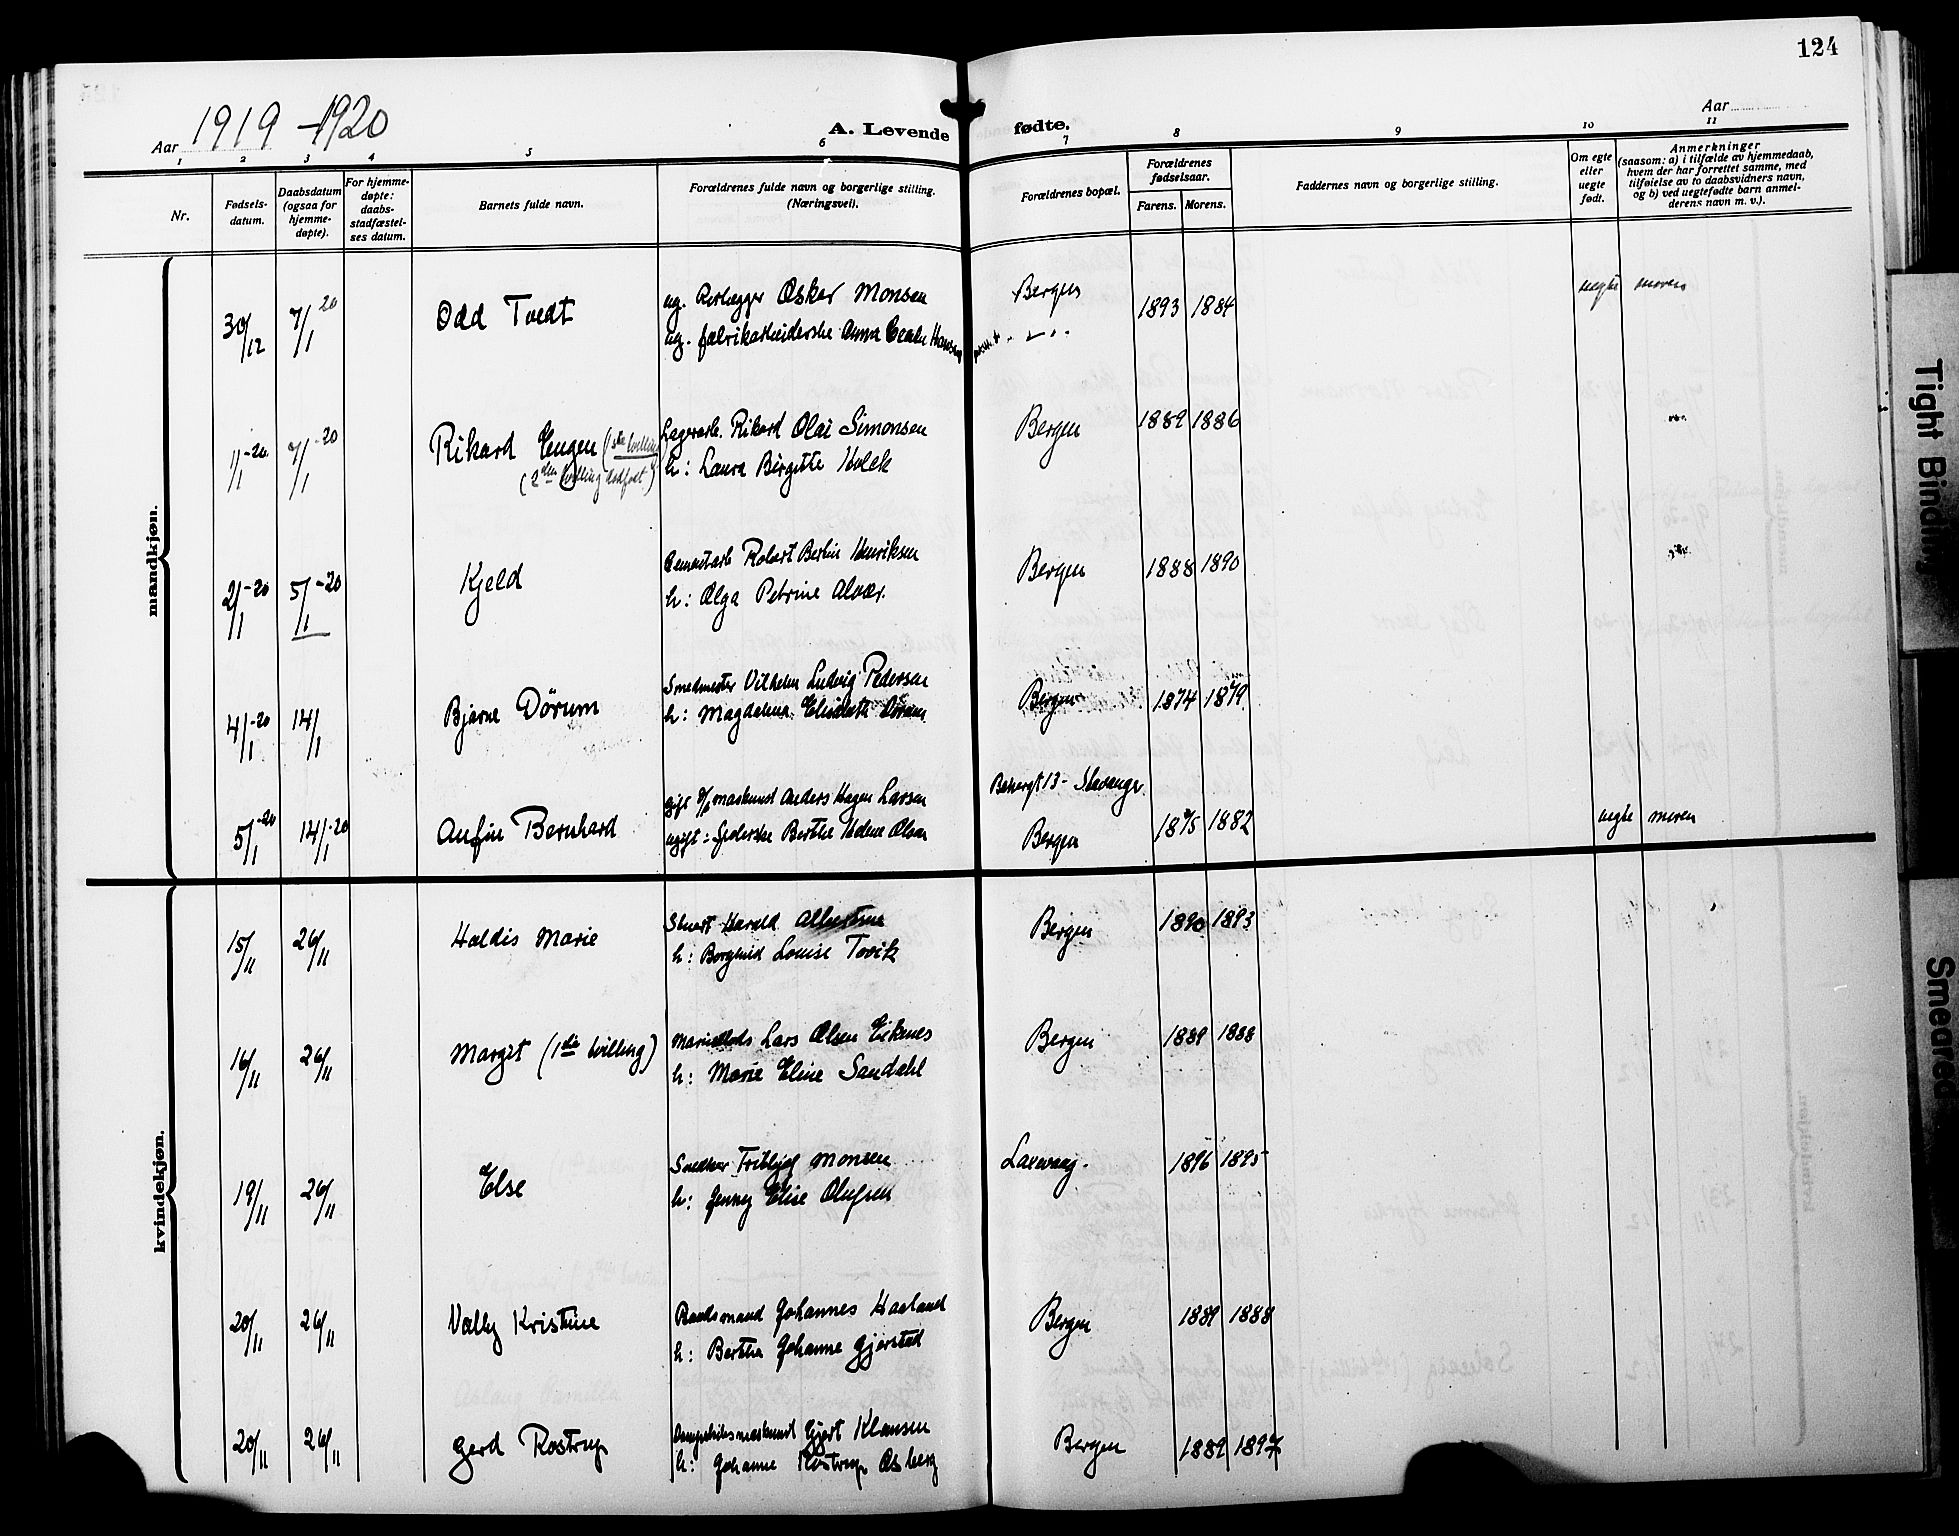 124
Aar 1919-1920
A. Levende fødte.
Aar
1 2 3 4 5 6 7 8 9 10 11
Nr.
Fødsels-
datum.
Daabsdatum
(ogsaa for
hjemme-
døpte).
For hjemme-
døpte:
daabs-
stadfæstel-
ses datum.
Barnets fulde navn.
Forældrenes fulde navn og borgerlige stilling.
(Næringsvei).
Forældrenes bopæl.
Forældrenes
fødselsaar.
Farens. Morens.
Faddernes navn og borgerlige stilling.
Om egte
eller
uegte
født.
Anmerkninger
(saasom: a) i tilfælde av hjemmedaab,
hvem der har forrettet samme, med
tilføielse av to daabsvidners navn,
og b) ved uegtefødte barn anmel-
derens navn m. v.).
mandkjøn.
30/12 7/1 20 Odd Tvedt ug. Rørlægger Oskar Monsen Bergen 1893 1884 uegte moren
ug. fabrikarbeiderske Anna Hansen
1/1-20 7/1-20 Rikard Eugen (1ste tvilling) Lagerarb. Rikard Olai Simonsen Bergen 1889 1886
(2den tvilling dødfødt) h: Laura Birgitte Holck
2/1-20 5/1-20 Kjeld Cementarb Robert Bertin Henriksen Bergen 1888 1890
h: Olga Petrine Alvær.
4/1-20 14/1 Bjarne Dörum Smedmester Vilhelm Ludvig Pedersen Bergen 1874 1879
h: Magdalena Elisabeth Dörum
5/1-20 14/1-20 Anfin Bernhard gift maskinist Anders Hagen Larsen Stavanger 1875 1882 uegte moren
ugift: Syerske Berthe Helene Olsen Bergen
kvindekjøn.
15/11 26/11 Haldis Marie Stuert Harald Albertsen Bergen 1890 1893
h: Borghild Louise Tovik
16/11 26/11 Margit (1ste tvilling) Lars Olsen Eikenes Bergen 1889 1888
h: Marie Eline Sandahl
19/11 26/11 Else Snedker Monsen Laxevaag. 1896 1895
h: Jenny Elise Olufsen
20/11 26/11 Vally Kristine Baadsmand Johannes Haaland Bergen 1889 1888
h: Berthe Johanne Gjerstad
20/11 26/11 Gerd Rostrup Gjert Klausen Bergen 1889 1897
h: Johanne Rostrup Osberg
Tight Binding
Smeared